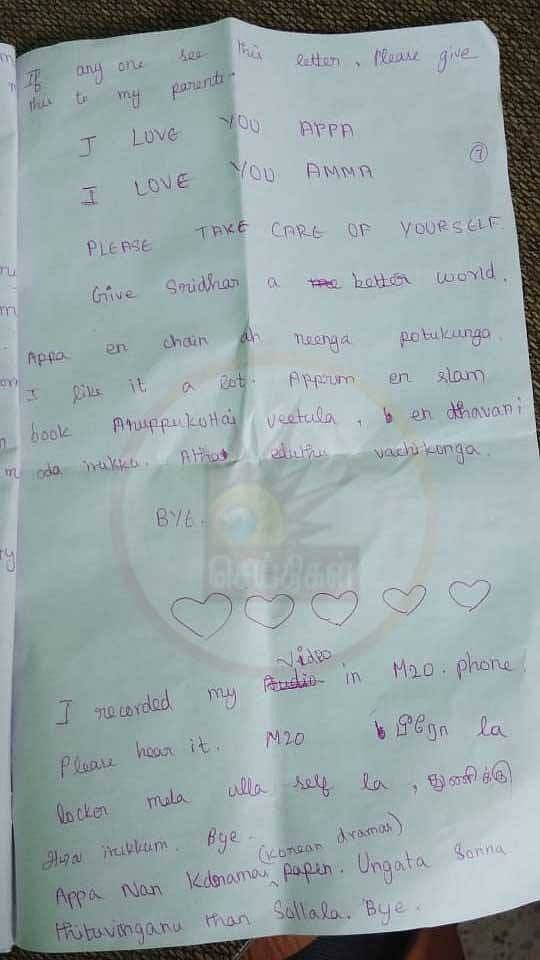 If any one see this letter, Please give
this to my parents.
I LOVE YOU APPA
I LOVE YOU AMMA
7
PLEASE TAKE CARE OF YOURSELF.
Give Sridhar a better world.
Appa en chain ah neenga potukunga.
I like it a lot. Apprum en slam
book Aruppukottai veetula, en dhavani
oda irukku. Atha eduthu vachikonga.
BYE.
செய்திகள்
Video
I recorded my Audio in M20 phone.
Please hear it. M20 பீரோ la
locker mela ulla self la, துணிக்கு
அடில irukkum. Bye.
(Korean dramas)
Appa Nan Kdramas papen. Ungata Sonna
thituvinganu than Sollala. Bye.